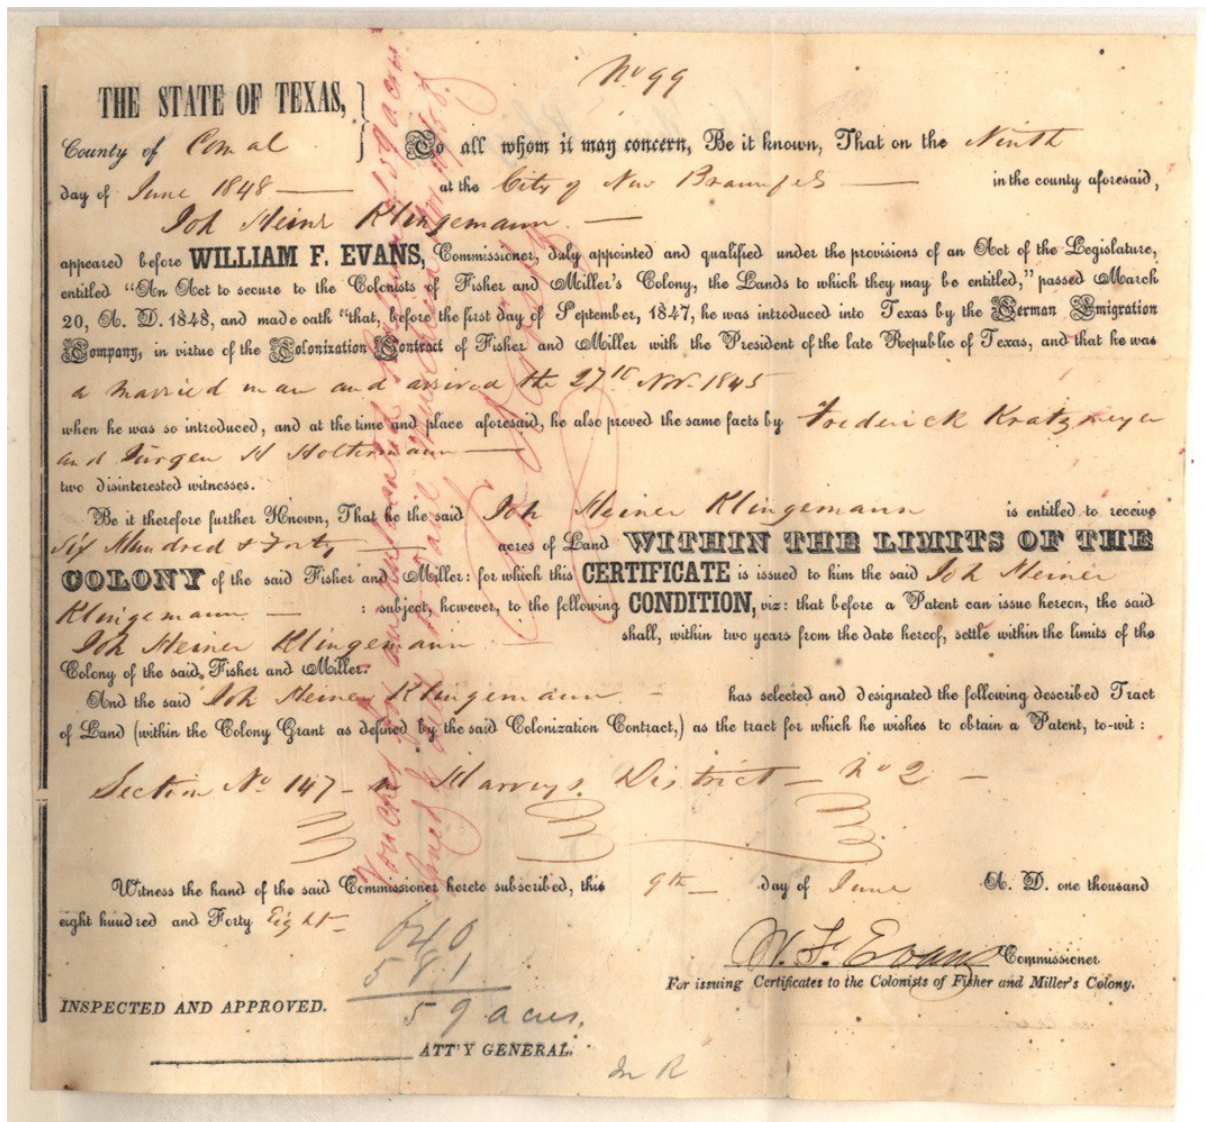 No 99
THE STATE OF TEXAS,
County of Comal
To all whom it may concern, Be it known, That on the Ninth
day of June 1848 — at the City of New Braunfels — in the county aforesaid,
Joh Heinr Klingemann —
appeared before WILLIAM F. EVANS, Commissioner, duly appointed and qualified under the provisions of an Act of the Legislature,
entitled "An Act to secure to the Colonists of Fisher and Miller's Colony, the Lands to which they may be entitled," passed March
20, A. D. 1848, and made oath "that, before the first day of September, 1847, he was introduced into Texas by the German Emigration
Company, in virtue of the Colonization Contract of Fisher and Miller with the President of the late Republic of Texas, and that he was
a married man and arrived the 27th Nov. 1845
when he was so introduced, and at the time and place aforesaid, he also proved the same facts by Frederick Kratzmeyer
and Jürgen H Holtermann —
two disinterested witnesses.
Be it therefore further Known, That he the said Joh Heiner Klingemann is entitled to receive
Six Hundred & Forty — acres of Land WITHIN THE LIMITS OF THE
COLONY of the said Fisher and Miller: for which this CERTIFICATE is issued to him the said Joh Heiner
Klingemann — : subject, however, to the following CONDITION, viz: that before a Patent can issue hereon, the said
Joh Heiner Klingemann — shall, within two years from the date hereof, settle within the limits of the
Colony of the said, Fisher and Miller.
And the said Joh Heiner Klingemann — has selected and designated the following described Tract
of Land (within the Colony Grant as defined by the said Colonization Contract,) as the tract for which he wishes to obtain a Patent, to-wit:
Section No 147 – in Harveys District – No 2 –
Witness the hand of the said Commissioner hereto subscribed, this 9th – day of June A. D. one thousand
eight hundred and Forty Eight –
640
581
59 acres.
W. F. Evans Commissioner
For issuing Certificates to the Colonists of Fisher and Miller's Colony.
INSPECTED AND APPROVED.
ATT'Y GENERAL.